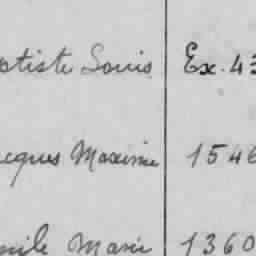 ptiste Louis Ex. 43
cques Maxime 1546
mile Marie 1360